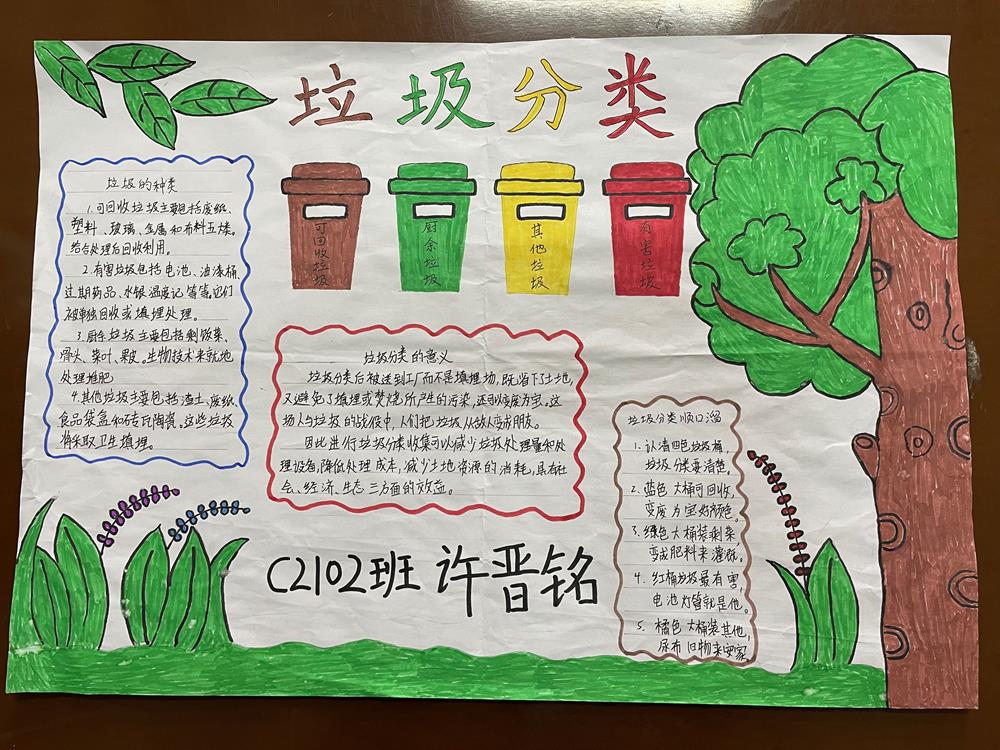 垃圾分类
可回收垃圾
厨余垃圾
其他垃圾
有害垃圾
垃圾的种类
1.可回收垃圾主要包括废纸、
塑料、玻璃、金属和布料五类。
综合处理后回收利用。
2.有害垃圾包括电池、油漆桶、
过期药品、水银温度记等等,它们
被单独回收或填埋处理。
3.厨余垃圾主要包括剩饭菜、
骨头、菜叶、果皮。生物技术来就地
处理堆肥
4.其他垃圾主要包括渣土、废纸
食品袋盒和砖瓦陶瓷。这些垃圾
将采取卫生填埋。
垃圾分类的意义
垃圾分类后被送到工厂而不是填埋场,既省下了土地,
又避免了填埋或焚烧所产生的污染,还可以变废为宝。这
场人与垃圾的战役中,人们把垃圾从敌人变成朋友。
因此进行垃圾分类收集可以减少垃圾处理量和处
理设备,降低处理成本,减少土地资源的消耗,具有社
会、经济、生态三方面的效益。
垃圾分类顺口溜
1.认清四色垃圾桶,
垃圾分类要清楚。
2.蓝色大桶可回收,
变废为宝好颜色。
3.绿色大桶装剩菜,
变成肥料来灌溉。
4.红桶垃圾最有害,
电池灯管就是他。
5.橘色大桶装其他,
尿布旧物来安家。
C2102班 许晋铭